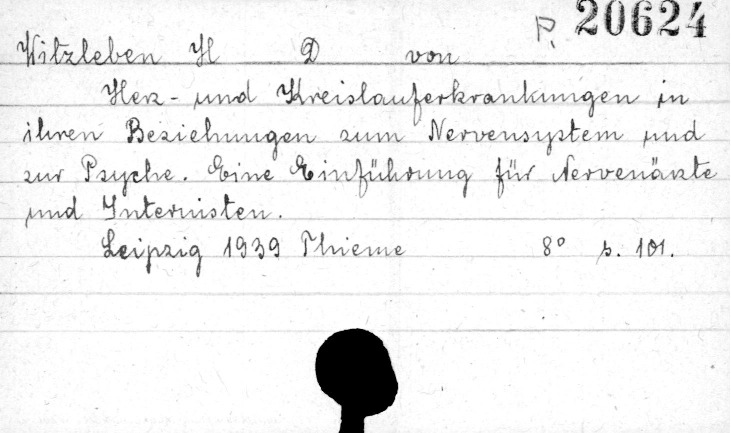 P. 20624
Witzleben H D von
Herz - und Kreislauferkrankungen in
ihren Beziehungen zum Nervensystem und
zur Psyche. Eine Einführung für Nervenärzte
und Internisten.
Leipzig 1939 Thieme 8° s. 101.